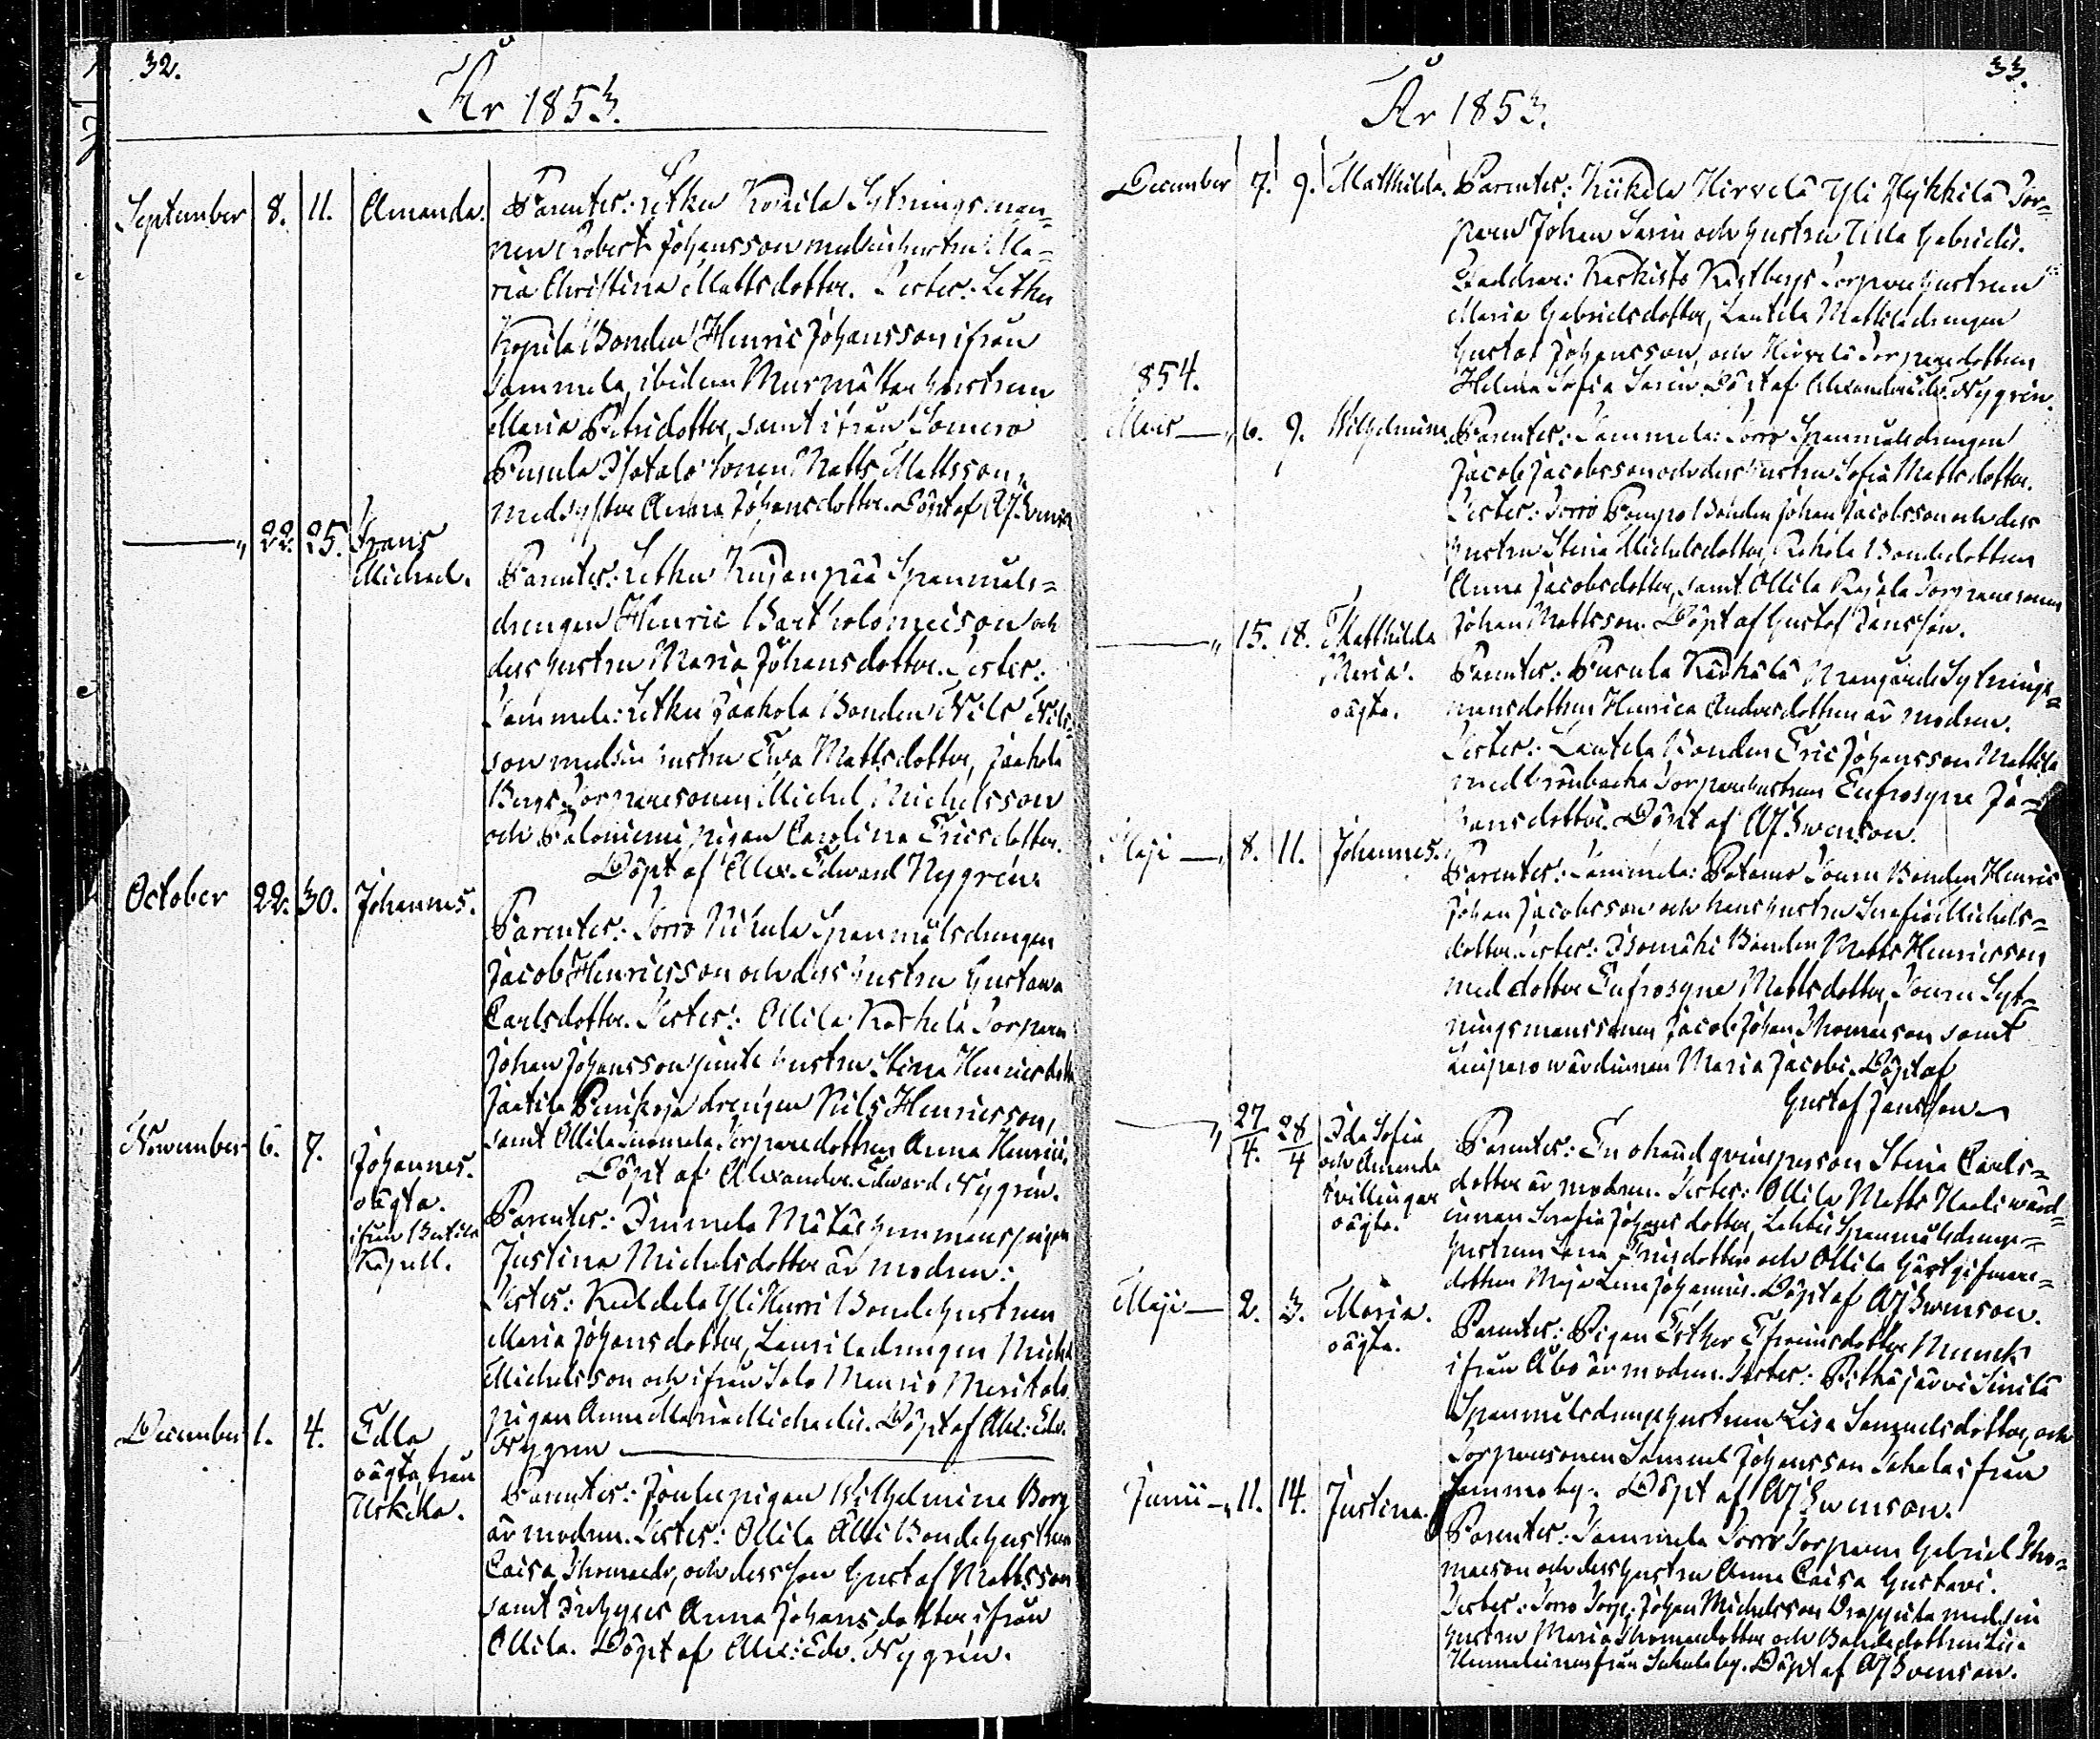 32.
År 1853.
September 8. 11. Amanda. Parentes: Letku Kopila Sytningsman=
nen Robert Johansson med sin hustru Ma=
ria Christina Mattsdotter. Testes: Letku
Kopila Bonden Henric Johansson ifrån
Tammela, ibidem hustrun
Maria dotter, samt ifrån Somero
Pusula sonen Matts Mattsson,
med syster Anna Johansdotter. Döpt af AJSvenson
— „ 22. 25. Frans
Michael. Parentes: Letku Kujanpää Spanmåls=
drengen Henric Bartholomeison och
dess hustru Maria Johansdotter. Testes:
Tammela: Letku Jaakola Bonden Nils Nils=
son med sin hustru Eva Mattsdotter, Jaakola
Bergs Torparesonen Michel Michelsson
och Paloniemi pigan Carolina Ericsdotter.
Döpt af Alex. Edward Nygrén.
October 22. 30. Johannes.
Parentes: Torro Nikula Spanmålsdrengen
Jacob Henricsson och dess hustru Gustava
Carlsdotter. Testes: Ollila Torparen
Johan Johansson jemte hustru Stina Henricsdotter
Jaatila drengen Nils Henricsson,
samt Ollila Torparedottren Anna Henrici.
Döpt af Alexander Edward Nygrén.
November 6. 7. Johannes.
oägta.
ifrån
Kapell.
Parentes: pigan
Justina Michelsdotter är modren:
Testes: Yli Bondehustrun
Maria Johansdotter, Laurila drengen Michel
Michelsson och ifrån Salo
pigan Anna Maria Michaelis. Döpt af Alex: Edv.
Nygrén
December 1. 4. Edla
oägta, från
Uskela.
Parentes: pigan Wilhelmina Borg
är modren. Testes: Ollila Bondehustrun
Caisa och dess son Gustaf Mattsson
samt Anna Johansdotter ifrån
Ollila. Döpt af Alex: Edv. Nygrén.
33.
År 1853.
December 7. 9. Matthilda. Parentes: Hirvelä Yli Tor=
paren Johan och hustru Ulla Gabrielis.
Faddrar: Torparehustrun
Maria Gabrielsdotter, Lautela Mattila drengen
Gustaf Johansson, och Hirvelä Torparedottren
Helena Sofia Döpt af Alexander Edv. Nygrén.
1854.
Mars — „ 6. 9. Wilhelmina. Parentes: Tammela: Torro Spanmålsdrengen
Jacob Jacobsson och dess hustru Sofia Mattsdotter.
Testes: Torro Bonden Johan Jacobsson och dess
hustru Stina Michelsdotter, Bondedottren
Anna Jacobsdotter, samt Ollila Rajala Torparesonen
Johan Mattsson. Döpt af Gustaf Jansson.
— „ 15. 18. Matthilda
Maria.
oägta.
Parentes: Pusula Sytnings=
mansdottren Henrica Andersdotter är modren.
Testes: Lautela Bonden Eric Johansson Mattila
med Torparehustrun Eufrosyne Jo=
hansdotter. Döpt af AJSvenson.
Maji — „ 8. 11. Johannes.
Parentes: Tammela: Patamo Bonden Henric
Johan Jacobsson och hans hustru Serafia Michels=
dotter. Testes: Isomäki Bonden Matts Henricsson
med dotter Eufrosyne Mattsdotter, Syt=
ningsmanssonen Jacob Johan Thomasson samt
wärdinnan Maria Jacobi. Döpt af
Gustaf Jansson
— „ 27/4. 28/4 Ida Sofia
och Amanda
tvillingar
oägta.
Parentes: En okänd qvinsperson Stina Carls=
dotter är modren. Testes: Ollila Matts wärd=
innan Serafia Johansdotter, Spanmålsdrengs=
hustrun Lena Ericsdotter och Ollila Gästgifvare=
dottren Maja Lena Johannis. Döpt af AJSvenson.
Maji — 2. 3. Maria.
oägta.
Parentes: Pigan Esther Efraimsdotter Munck
ifrån Åbo är modren. Testes: Pitkäjärvi Sinilä
Spanmålsdrengshustrun Lisa Samuelsdotter, och
Torparesonen Samuel Johansson ifrån
by. Döpt af AJSvenson.
Junii — „ 11. 14. Justina.
Parentes: Tammela Torro Torparen Gabriel Tho=
masson och dess hustru Anna Caisa Gustavi.
Testes: Torro Torp: Johan Michelsson med sin
hustru Maria Thomasdotter och Bondedottren Lisa
från by. Döpt af AJSvenson.